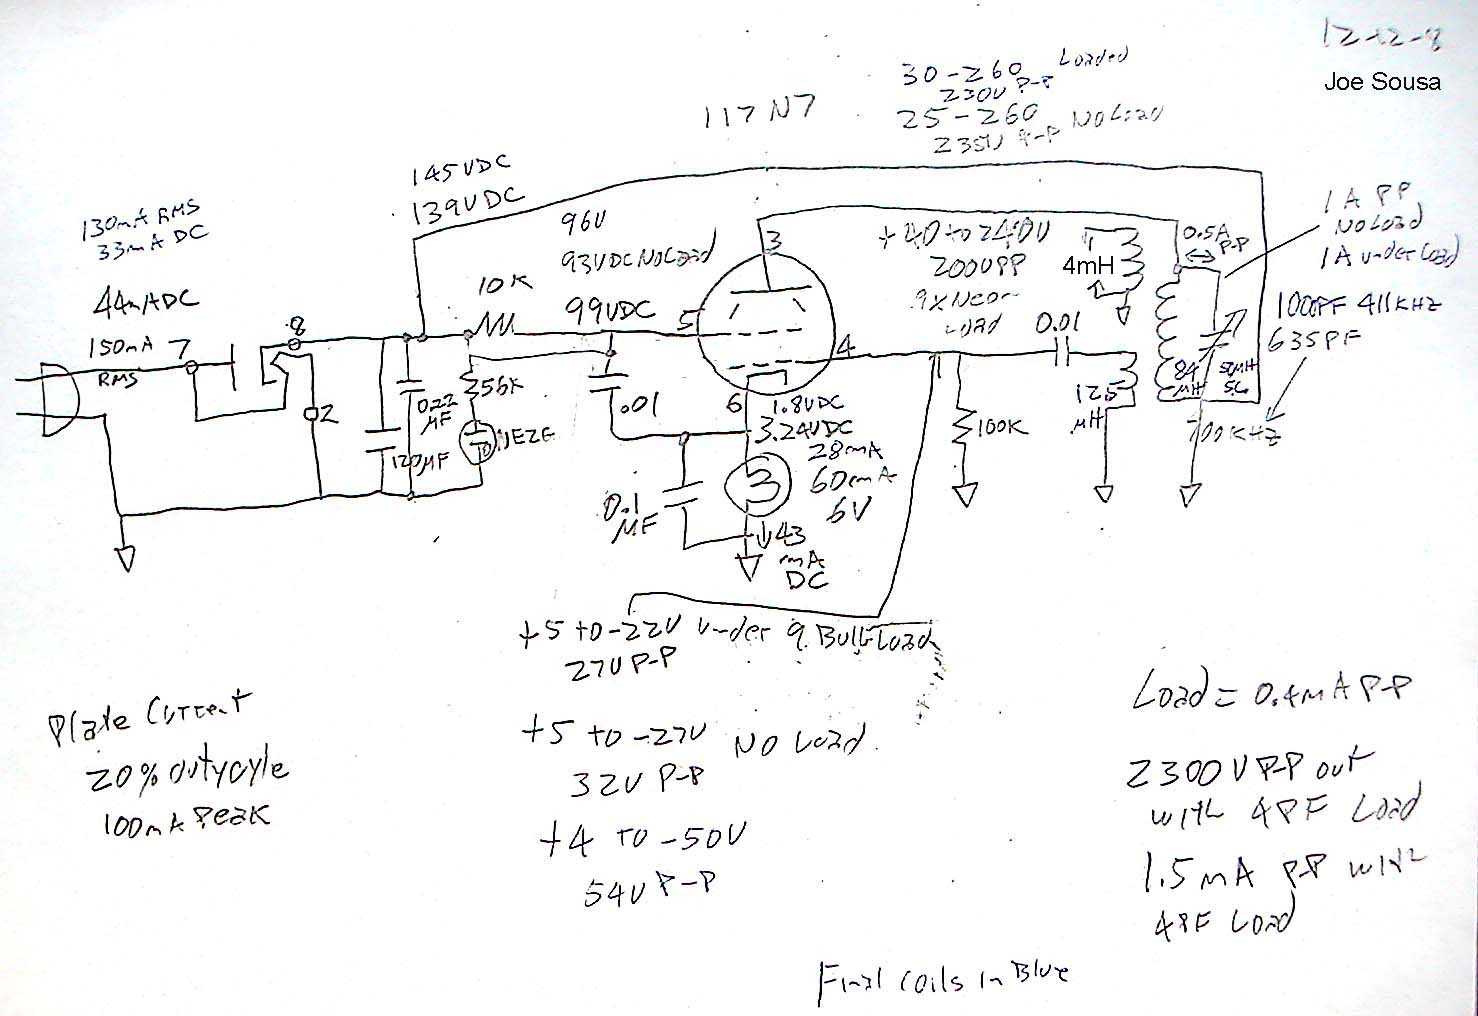 12-12-8
Joe Sousa
30-260 Loaded
230V P-P
25-260 No Load
235V P-P
117N7
145VDC
139VDC
130mA RMS
33mA DC
44mADC
150mA
RMS
7
8
2
96V
93VDC No Load
99VDC
10K
5
3
4
6
+40 to 240V
200VPP
9x Neon
Load
4mH
0.5A
P-P
1A PP
No Load
1A under Load
100PF 411KHZ
635PF
700KHZ
84
μH
0.01
12.5
μH
100K
56K
0.22
μF
120μF
NE2E
.01
0.1
μF
1.8VDC
3.24VDC
28mA
60mA
6V
43
mA
DC
+5 to -22V under 9 Bulb Load
27V P-P
+5 to -27V No Load
32V P-P
+4 to -50V
54V P-P
Plate Current
20% dutycyle
100mA Peak
Load = 0.4mA P-P
2300V P-P out
with 4PF Load
1.5mA P-P with
4PF Load
Final coils in Blue